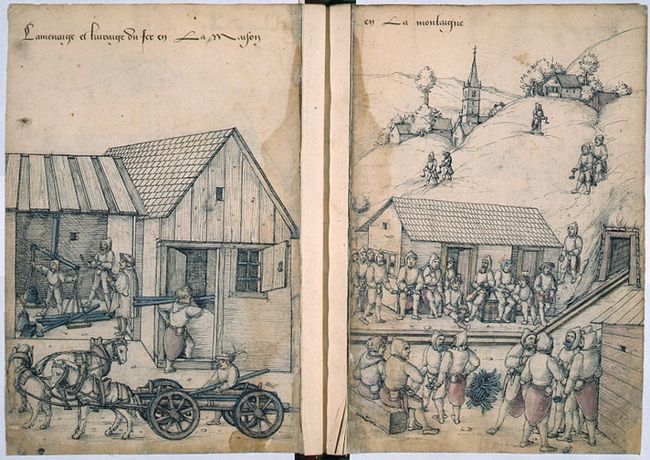 Lamenaige et liuraige du fer en La Maison
en La montaigne